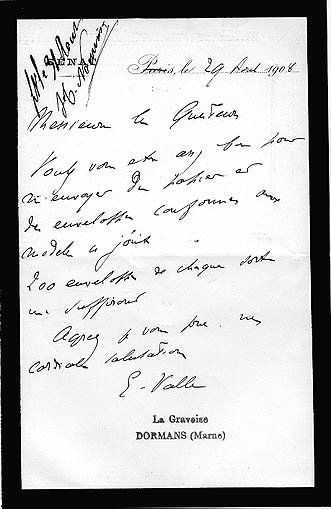 SÉNAT
Paris, le 29 Aout 1908
Messieurs les Questeurs
Voulez vous etre assez bon pour
m'envoyer du papier et
des enveloppes conformes aux
modeles ci joints
200 enveloppes de chaque sorte
me suffiront
Agréez je vous prie mes
cordiales salutations
E. Valle
La Graveise
DORMANS (Marne)